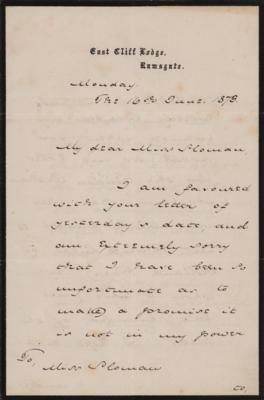 East Cliff Lodge,
Ramsgate.
Monday
The 16th June. 1879.
My dear Miss Sloman,
I am favoured
with your letter of
yesterday's date, and
am Extremely sorry
that I have been so
unfortunate as to
make a promise it
is not in my power
To,
Miss Sloman
to,